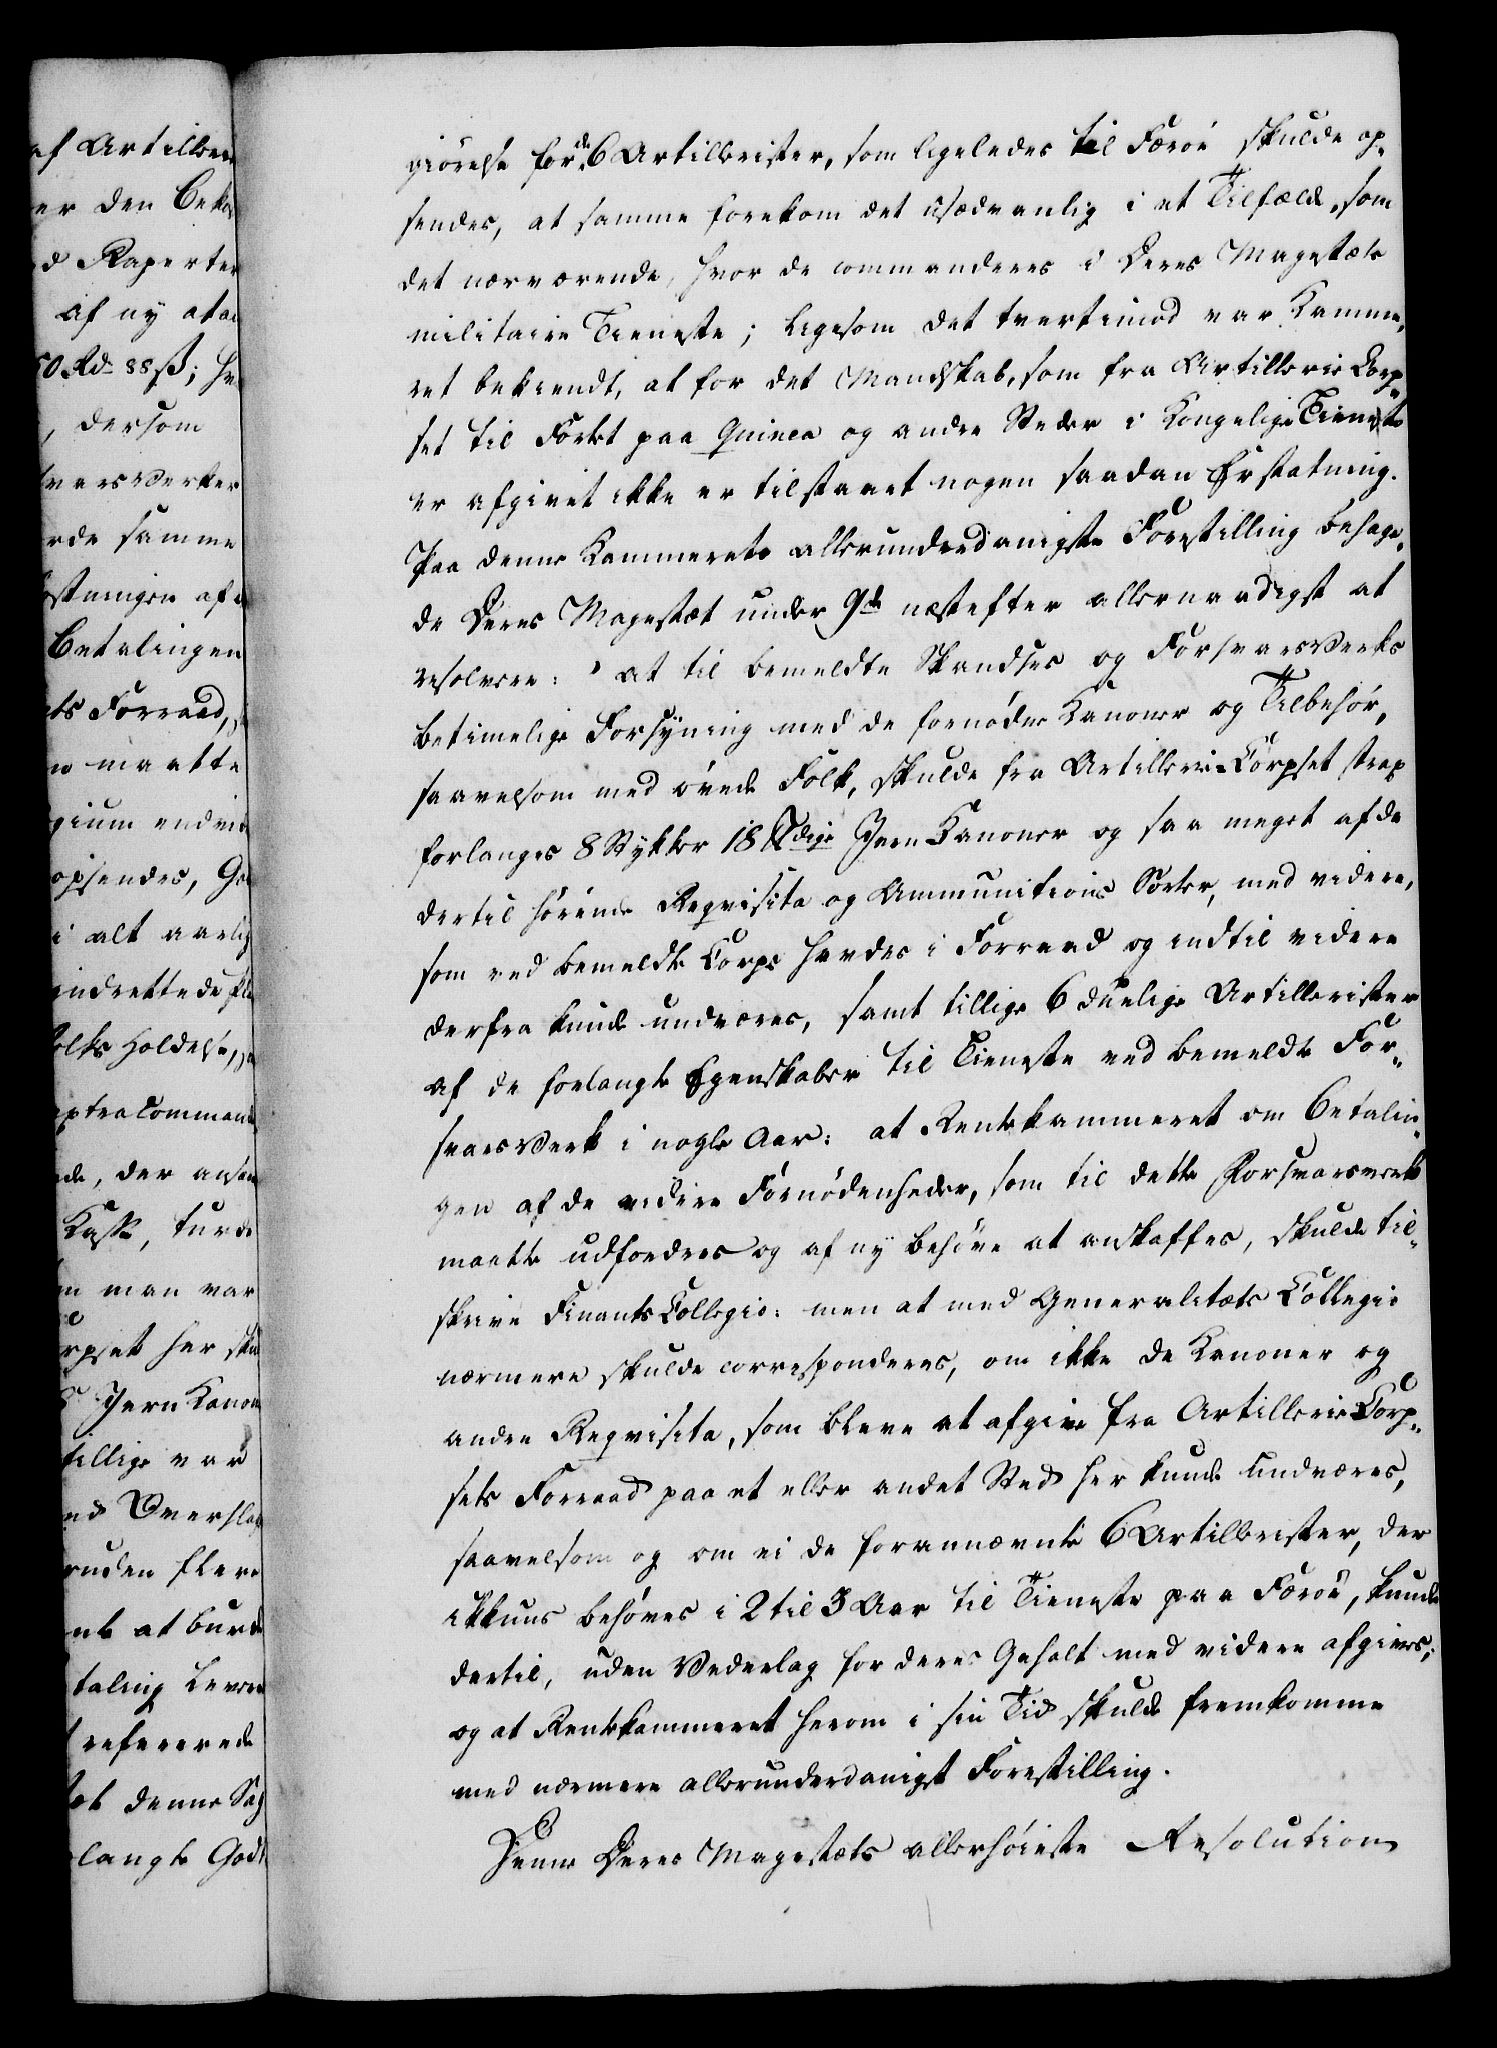 af Artilleri
er den Beko
d Raperter
af ny at an
50 Rd 88 ß; hv
, dersom
varsverker
rde samme
ostningen af
Betalingen
ets Forraad,
n maatte
gium endvi
opsendes, Ge
i alt aarlig
indrettede
olks Holdelse,
extra Comman
de, der ansa
Kasse, turde
m man var
rpset her sku
8 Jern Kanon
tillige var
ed Overslag
ruden flere
nte at burde
taling levere
refererede
denne Sag
langte Godt
giörelse for de 6 Artillerister, som ligeledes til Færöe skulde op-
sendes, at samme forekom det usædvanlig i et Tilfælde, som
det nærværende, hvor de commanderes i Deres Majestæts
militaire Tieneste; ligesom det tvertimod var Kamme-
ret bekiendt, at for det Mandskab, som fra Artillerie Corp-
set til Fortet paa Guinea og andre Steder i Kongelige Tieneste
er afgivet ikke er tilstaaet nogen saadan Erstatning.
Paa denne Kammerets allerunderdanigste Forestilling behage-
de Deres Majestæt under 9de næstefter allernaadigst at
resolvere: at til bemeldte Skandses og Forsvarsverks
betimelige Forsyning med de fornödne Kanoner og Tilbehör,
saavelsom med övede Folk, skulde fra Artillerie-Corpset strax
forlanges 8 Stykker 18 ℔dige Jern Kanoner og saa meget af de
dertil hörende Reqvisita og Ammunitions Sorter, med videre,
som ved bemeldte Corps havdes i Forraad og indtil videre
derfra kunde undværes, samt tillige 6 duelige Artillerister
af de forlangte Egenskaber til Tieneste ved bemeldte For-
svarsverk i nogle Aar: at Rentekammeret om Betalin-
gen af de videre Fornödenheder, som til dette Forsvarsverk
maatte udfordres og af ny behöve at anskaffes, skulde til-
skrive Finants Collegio: men at med Generalitets Collegio
nærmere skulde corresponderes, om ikke de Kanoner og
andre Reqvisita, som bleve at afgive fra Artillerie Corp-
sets Forraad paa et eller andet Sted her kunde undværes,
saavelsom og om ei de forannævnte 6 Artillerister, der
ikkuns behöves i 2 til 3 Aar til Tieneste paa Færöe, kunde
dertil, uden Vederlag for deres Gehalt med videre afgives;
og at Rentekammeret herom i sin Tid skulde fremkomme
med nærmere allerunderdanigst Forestilling.
Denne Deres Majestæts allerhöieste Resolution